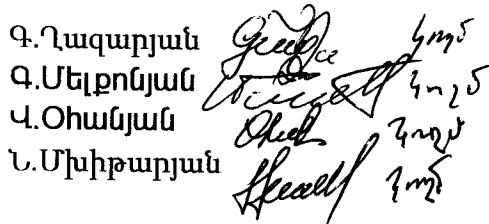 Գ.Ղազարյան կողմ
Գ.Մելքոնյան կողմ
Վ.Օհանյան կողմ
Ն.Մխիթարյան կողմ